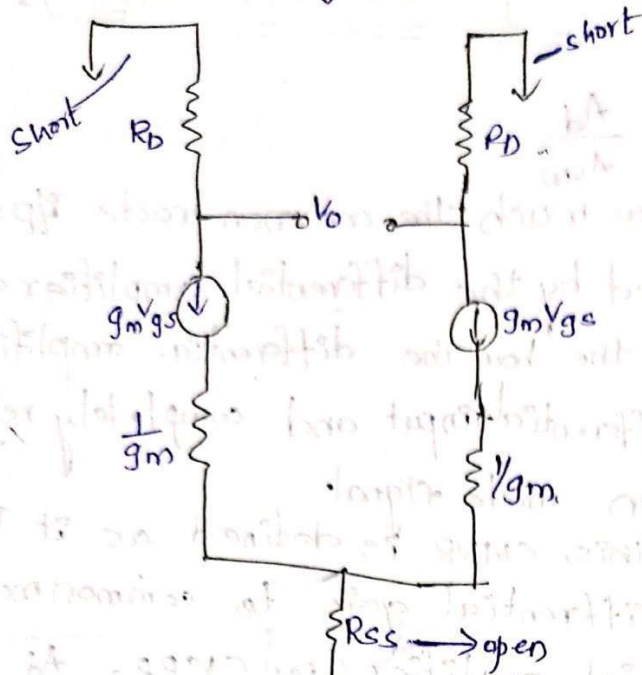 short
short
R_D
R_D
V_o
g_m V_gs
g_m V_gs
1/g_m
1/g_m
R_SS → open